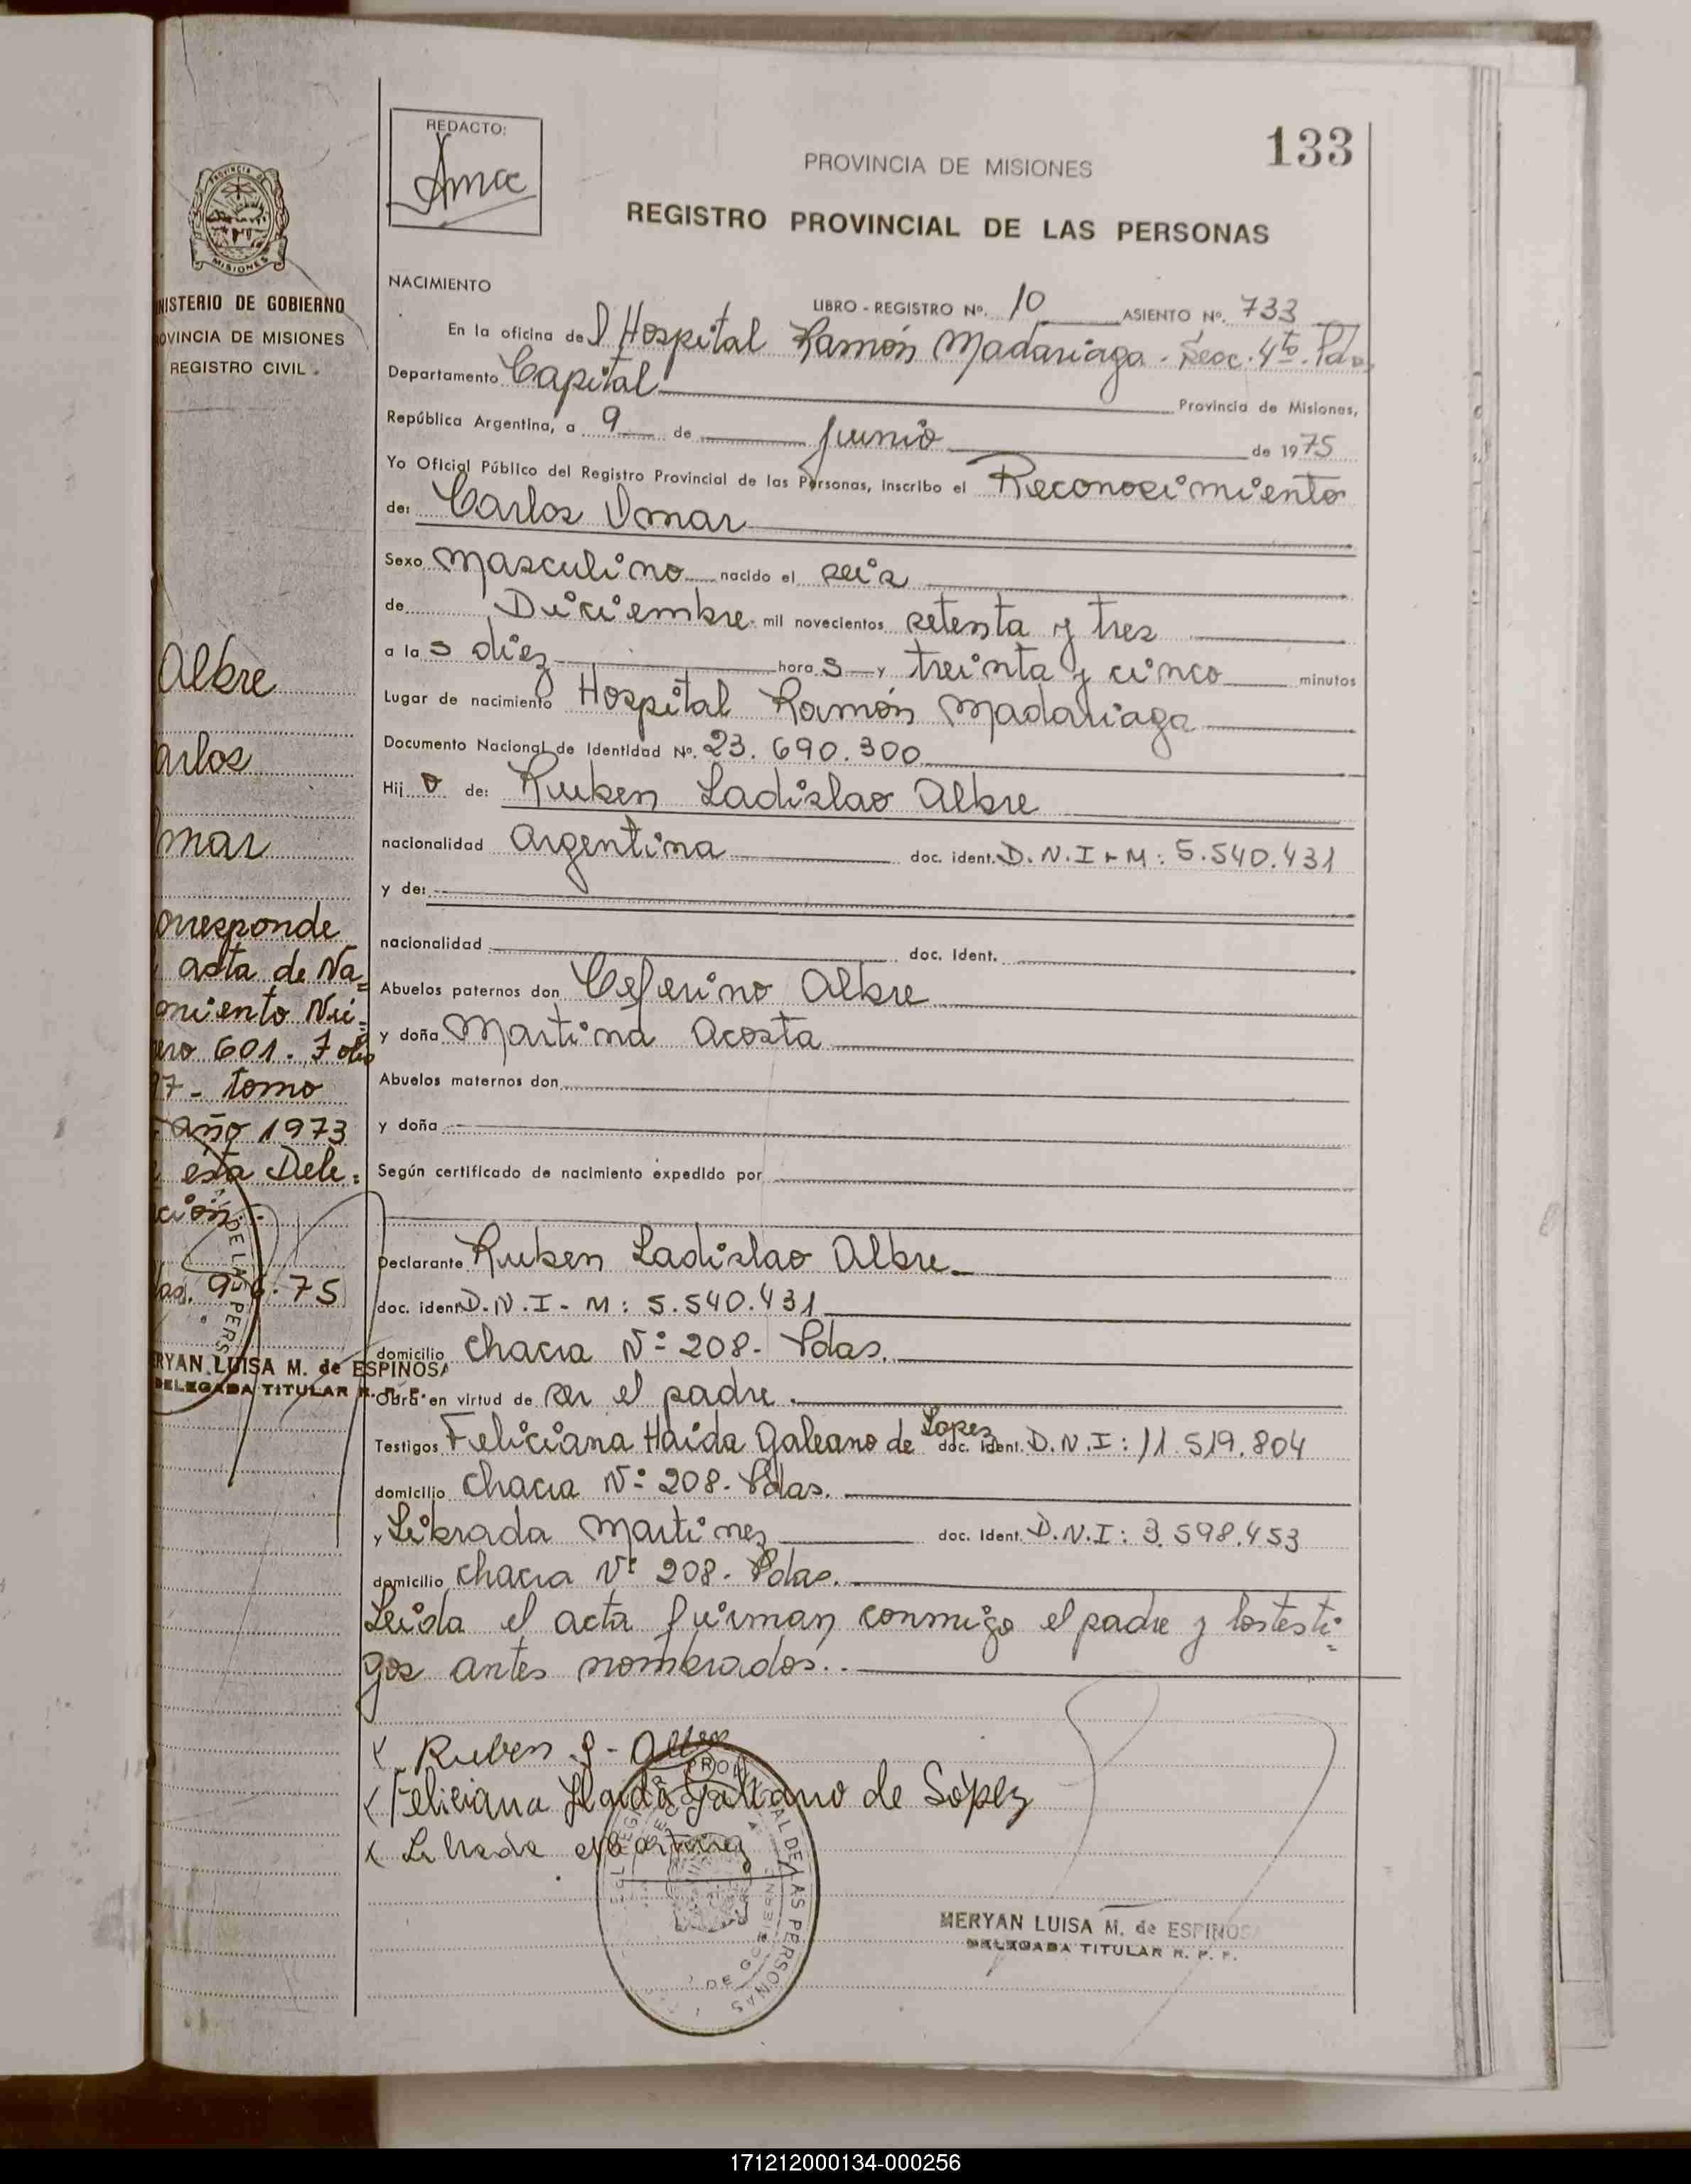 REDACTO:
133
PROVINCIA DE MISIONES
REGISTRO PROVINCIAL DE LAS PERSONAS
PROVINCIA DE
MISIONES
NISTERIO DE GOBIERNO
OVINCIA DE MISIONES
REGISTRO CIVIL
NACIMIENTO
LIBRO - REGISTRO Nº. 10 ASIENTO Nº. 733
En la oficina del Hospital Ramón Madariaga. Secc. 4to. Pdas
Departamento Capital Provincia de Misiones,
República Argentina, a 9 de junio de 1975
Yo Oficial Público del Registro Provincial de las Personas, inscribo el Reconosimiento
de: Carlos Omar
Sexo masculino nacido el seis
de Diciembre mil novecientos setenta y tres
a las diez horas y treinta y cinco minutos
Lugar de nacimiento Hospital Ramón Madariaga
Documento Nacional de Identidad Nº. 23.690.300
Hijo de: Ruben Ladislao Albre
nacionalidad Argentina doc. ident. D.N.I - M: 5.540.431
y de:
nacionalidad doc. Ident.
Abuelos paternos don Ceferino Albre
y doña Martina Acosta
Abuelos maternos don
y doña
Según certificado de nacimiento expedido por
Declarante Ruben Ladislao Albre
doc. ident D.N.I - M: 5.540.431
domicilio chacra Nº 208. Pdas.
Obra en virtud de ser el padre.
Testigos Feliciana Haida Galeano de Lopez doc. ident. D.N.I: 11.519.804
domicilio chacra Nº 208. Pdas.
y Librada Martinez doc. Ident. D.N.I: 3.598.453
domicilio chacra Nº 208. Pdas.
Leida el acta firman conmigo el padre y los testi=
gos antes nombrados..
Albre
arlos
mar
orresponde
acta de Na=
miento Nú=
ero 601. Folio
97 - tomo
año 1973
esta Dele=
ción.
das. 9.6.75
RYAN LUISA M. de ESPINOSA
DELEGADA TITULAR R. P. P.
Ruben L - Albre
Feliciana Haida Galeano de López
Librada Martinez
MERYAN LUISA M. de ESPINOSA
DELEGADA TITULAR R. P. P.
171212000134-000256